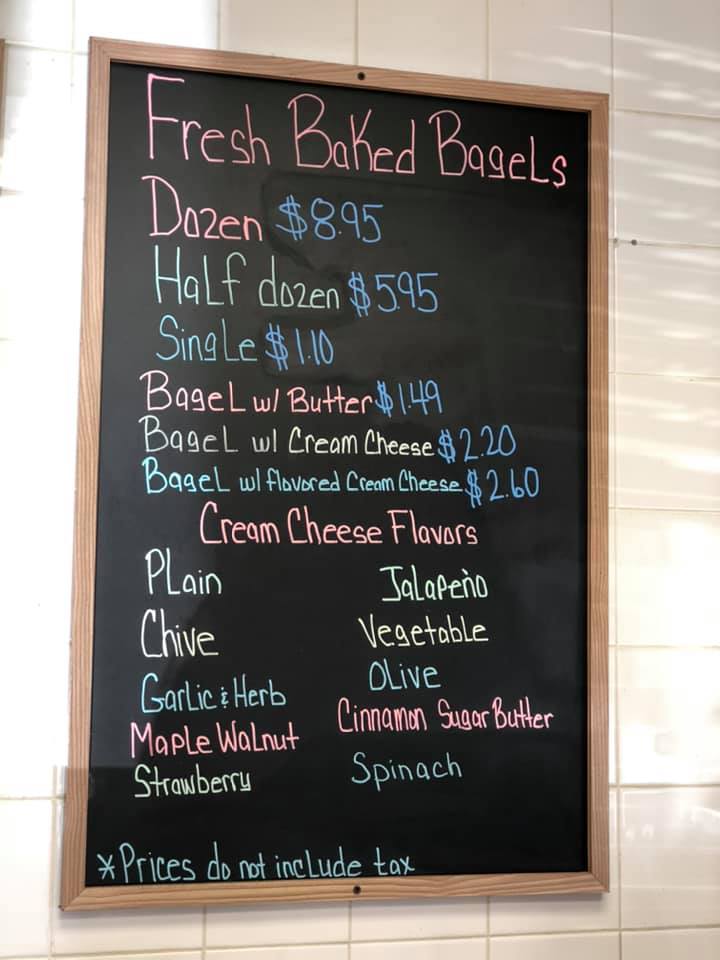 Fresh Baked Bagels
Dozen $8.95
Half dozen $5.95
Single $1.10
Bagel w/ Butter $1.49
Bagel w/ Cream Cheese $2.20
Bagel w/ flavored Cream Cheese $2.60
Cream Cheese Flavors
Plain Jalapeño
Chive Vegetable
Garlic & Herb Olive
Maple Walnut Cinnamon Sugar Butter
Strawberry Spinach
*Prices do not include tax